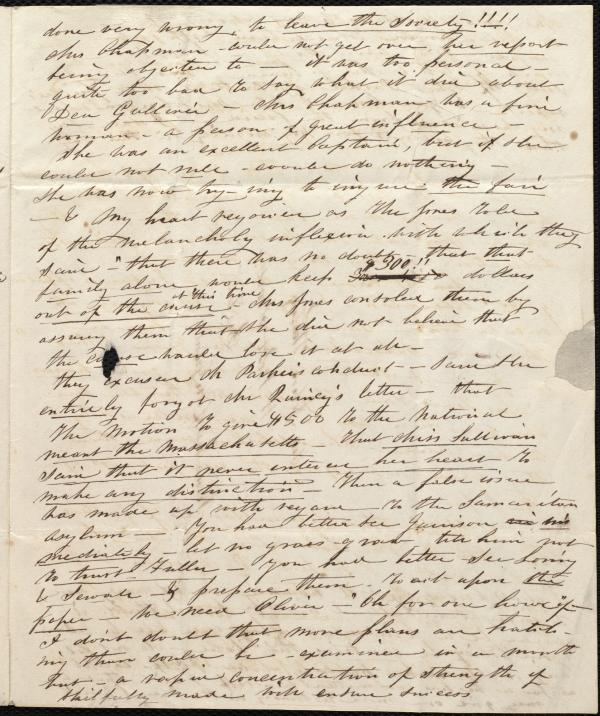 done very wrong, to leave the Society!!!!
Mrs Chapman could not get over her report
being objected to — it was too personal —
quite too bad to say what it did about
Dea Gulliver — Mrs Chapman was a fine
woman — a person of great influence —
She was an excellent Captain, but if she
could not rule — would do nothing —
She was now try-ing to injure the fair
— & my heart rejoices as Mrs Jones told
of the melancholy inflexion with which they
said — "that there was no doubt, that that
family alone would keep $300!! dollars
out of the cause at this time. Mrs Jones consoled them by
assuring them that she did not believe that
the cause would lose it at all —
They excused Dr Parkers conduct — said she
entirely forgot Mr Quincy's letter — that
the motion to give $500 to the national
meant the Massachusetts — that Miss Sullivan
said that it never entered her heart to
make any distinction — Then a false issue
was made up with regard to the Samaritan
Asylum — You had better see Garrison
mediately — let no grass grow tell him not
to trust Fuller — you had better see Loring
& Sewall — & prepare them to act upon the
paper — We need Oliver — "Oh for one hour" &c —
I don't doubt that more plans are hatch-
ing than could be examined in a month
but — a rapid concentration of strength if
skilfully made will ensure success